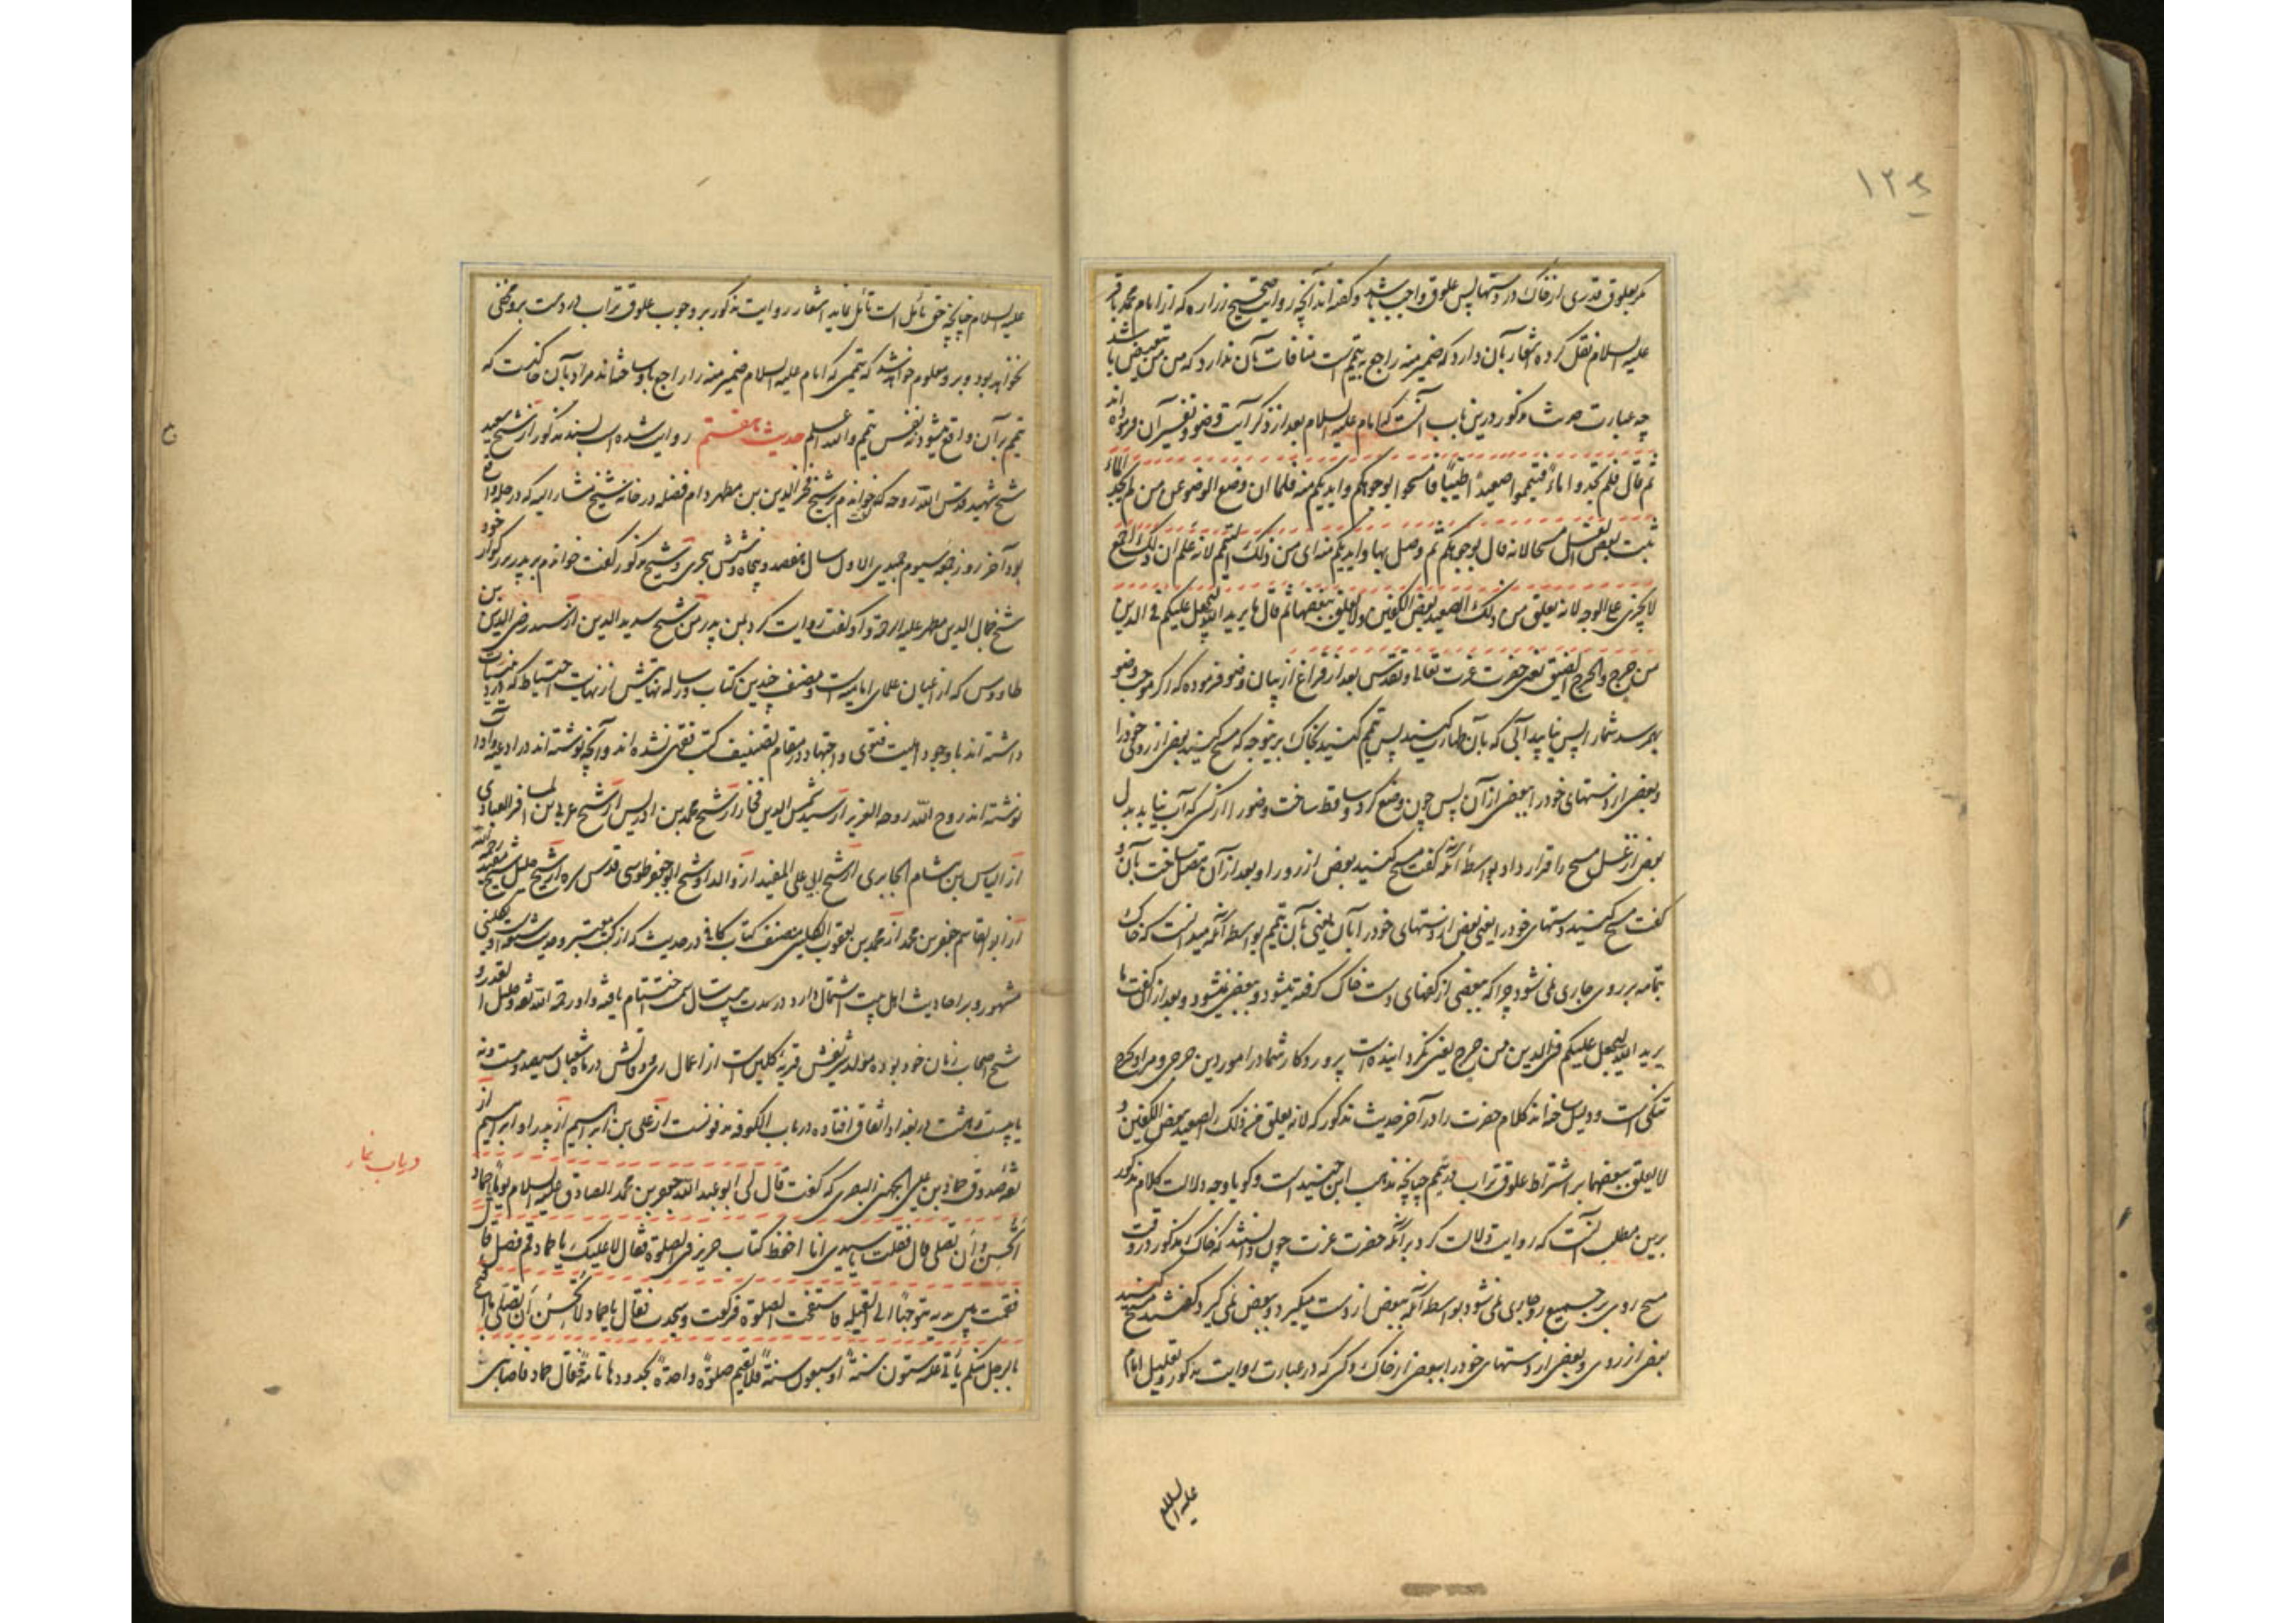 ١٢٤
مگر بعلوق قدری از خاک در دستها پس علوق واجب باشد و گفته‌اند آنچه روایت صحیح زراره که از امام محمد باقر
علیه السلام نقل کرده اشعار بآن دارد که ضمیر منه راجع به تیمم است منافات بآن ندارد که من من تبعیض باشد
چه عبارت حدیث مذکور درین باب آنست که امام علیه السلام بعد از ذکر آیت وضو و تفسیر آن فرموده‌اند
ثم قال فلم تجدوا ماء فتیمموا صعیدا طیبا فامسحوا بوجوهکم وایدیکم منه فلما ان وضع الوضوء عن من لم یجد الماء
اثبت بعض الغسل مسحا لانه قال بوجوهکم ثم وصل بها وایدیکم منه ای من ذلک التیمم لانه علم ان ذلک اجمع
لا یجری علی الوجه لانه یعلق من ذلک الصعید ببعض الکفین ولا یعلق ببعضها ثم قال ما یرید الله لیجعل علیکم فی الدین
من حرج والحرج الضیق یعنی حضرت عزت تعالی و تقدس بعد از فراغ از بیان وضو فرموده که اگر موجب وضو
بهم رسد شما را پس نیابید آبی که بآن طهارت کنید پس تیمم کنید بخاک برینوجه که مسح کنید بعض از روی خود را
و بعض از دستهای خود را ببعض از آن پس چون وضع کرد و ساقط ساخت وضو را از کسی که آب نیابد بدل
بعض از غسل مسح را قرار داد بواسطه آنکه گفت مسح کنید بعض از رو را و بعد از آن متصل ساخت بآن و
گفت مسح کنید دستهای خود را یعنی بعض از دستهای خود را بآن یعنی بآن تیمم بواسطه آنکه میدانست که خاک
بتمامه بر روی جاری نمی‌شود چرا که ببعضی از کفهای دست خاک گرفته میشود و ببعض نمیشود و بعد از آن گفت ما
یرید الله لیجعل علیکم فی الدین من حرج یعنی نگردانیده است پروردگار شما در امور دین حرجی و مراد بحرج
تنگی است و دلیل ساخته‌اند کلام حضرت را در آخر حدیث مذکور که لانه یعلق من ذلک الصعید ببعض الکفین و
لا یعلق ببعضها بر اشتراط علوق تراب در تیمم چنانچه مذهب ابن جنید است و گویا وجه دلالت کلام مذکور
برین مطلب آنست که روایت دلالت کرد بر آنکه حضرت عزت چون دانستند که خاک مذکور در وقت
مسح روی بر جمیع رو جاری نمی‌شود بواسطه آنکه ببعض از دست میگیرد و ببعض نمی‌گیرد گفتند مسح کنید
بعض از روی و بعض از دستهای خود را ببعض از خاک و کسی که در عبارت روایت مذکور و تعلیل امام
علیه السلام
علیه السلام چنانچه حق تأمل است تأمل نماید اشعار روایت مذکور بر وجوب علوق تراب در دست برو مخفی
نخواهد بود و برو معلوم خواهد شد که تیممی که امام علیه السلام ضمیر منه را راجع باو ساخته‌اند مراد بآن خاکیست که
تیمم بر آن واقع میشود نه نفس تیمم والله اعلم حدیث هفتم روایت شده است بسند مذکور از شیخ سعید
شیخ شهید قدس الله روحه که گفت خواندم بر شیخ فخر الدین بن مطهر دام فضله در خانه شیخ مشار الیه که در حله واقع
بود آخر روز جمعه سیوم جمیدی الاول سال هفتصد و پنجاه و شش هجری و شیخ مذکور گفت خواندم بر پدر بزرگوار خود
شیخ جمال الدین مطهر علیه الرحمة و او گفت روایت کرد بمن پدر من شیخ سدید الدین از سید رضی الدین بن
طاووس که از اعیان علمای امامیه است و مصنف چندین کتاب و رساله نهایتش از نهایت احتیاط که در دینیات
داشته‌اند با وجود اهلیت فتوی و اجتهاد در مقام تصنیف کتب فقهی نشده‌اند و آنچه نوشته‌اند در ادعیه و آداب
نوشته‌اند روح الله روحه العزیز از سید شمس الدین فخار از شیخ محمد بن ادریس از شیخ عربی بن مسافر العبادی
از الیاس بن هشام الحایری از شیخ ابی علی المفید از والد او شیخ ابو جعفر طوسی قدس سره از شیخ جلیل شیخ مفید رحمه الله
از ابو القاسم جعفر بن محمد از محمد بن یعقوب الکلینی مصنف کتاب کافی در حدیث که از کتب معتبره حدیث شیعه و
مشهور و بر احادیث اهل بیت اشتمال دارد در مدت بیست سال سمت اختتام یافته و او رحمة الله ثقه و جلیل القدر و
شیخ اصحاب زمان خود بوده مولد شریفش قریه کلین است از اعمال ری و وفاتش در ماه شعبان سیصد و بیست و نه
یا بیست و هشت در بغداد اتفاق افتاده در باب الکوفه مدفونست از علی بن ابراهیم از پدر او ابراهیم از
ثقه صدوق حماد بن عیسی الجهنی البصری که گفت قال لی ابو عبد الله جعفر بن محمد الصادق علیه السلام یوما یا حماد
اتحسن ان تصلی قال فقلت یا سیدی انا احفظ کتاب حریز فی الصلوة فقال لا علیک یا حماد قم فصل قال
فقمت بین یدیه متوجها الی القبلة فاستفتحت الصلوة فرکعت وسجدت فقال یا حماد لا تحسن ان تصلی ما اقبح
بالرجل منکم یأتی علیه ستون سنة او سبعون سنة فلا یقیم صلوة واحدة بحدودها تامة فقال حماد فاصابنی
در باب نماز